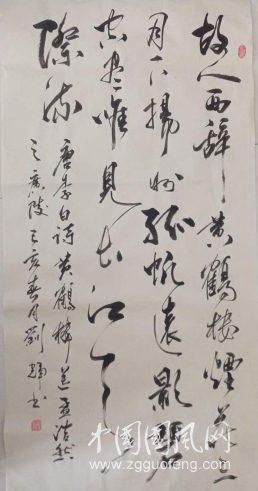 故人西辞黄鶴楼煙花三
月下揚州孤帆遠影碧
空尽唯見长江天
際流
唐李白诗黄鶴楼送孟浩然
之廣陵 己亥春月劉书
中国国风网
www.zgguofeng.com